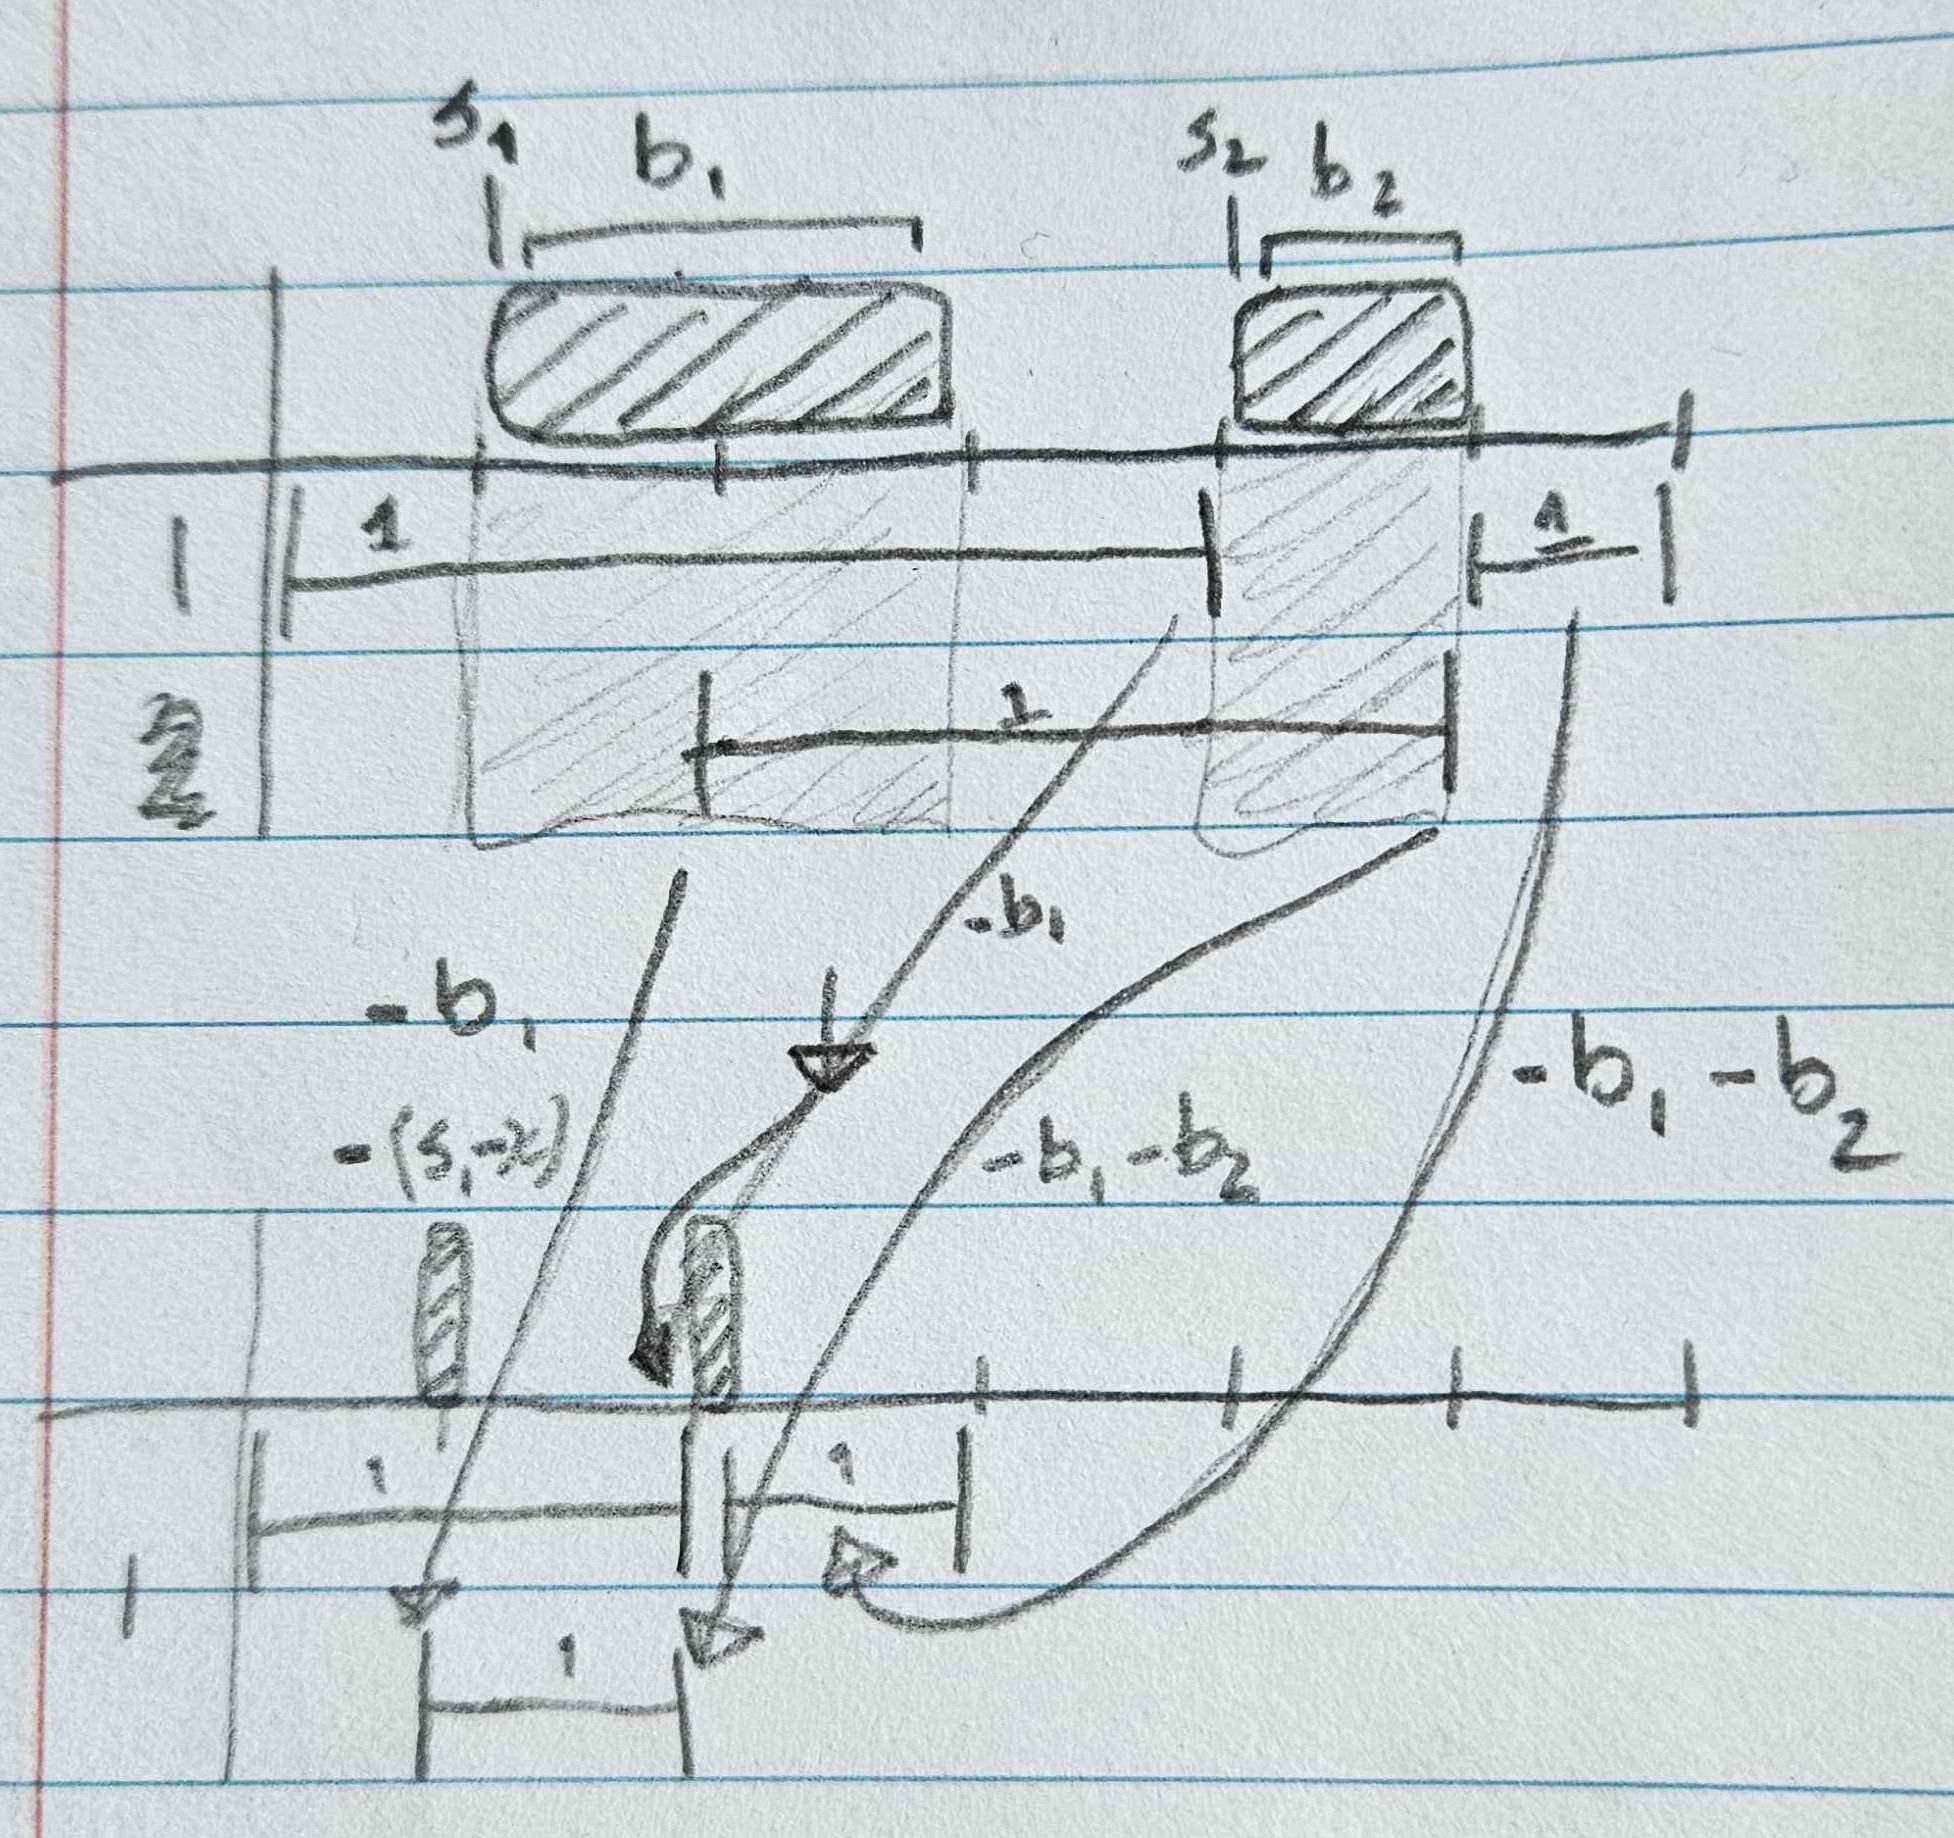 s₁ b₁ s₂ b₂
1 1
1
1
-b₁
-b₁
-b₁ -b₂
-b₁ -b₂
1 1
1
1